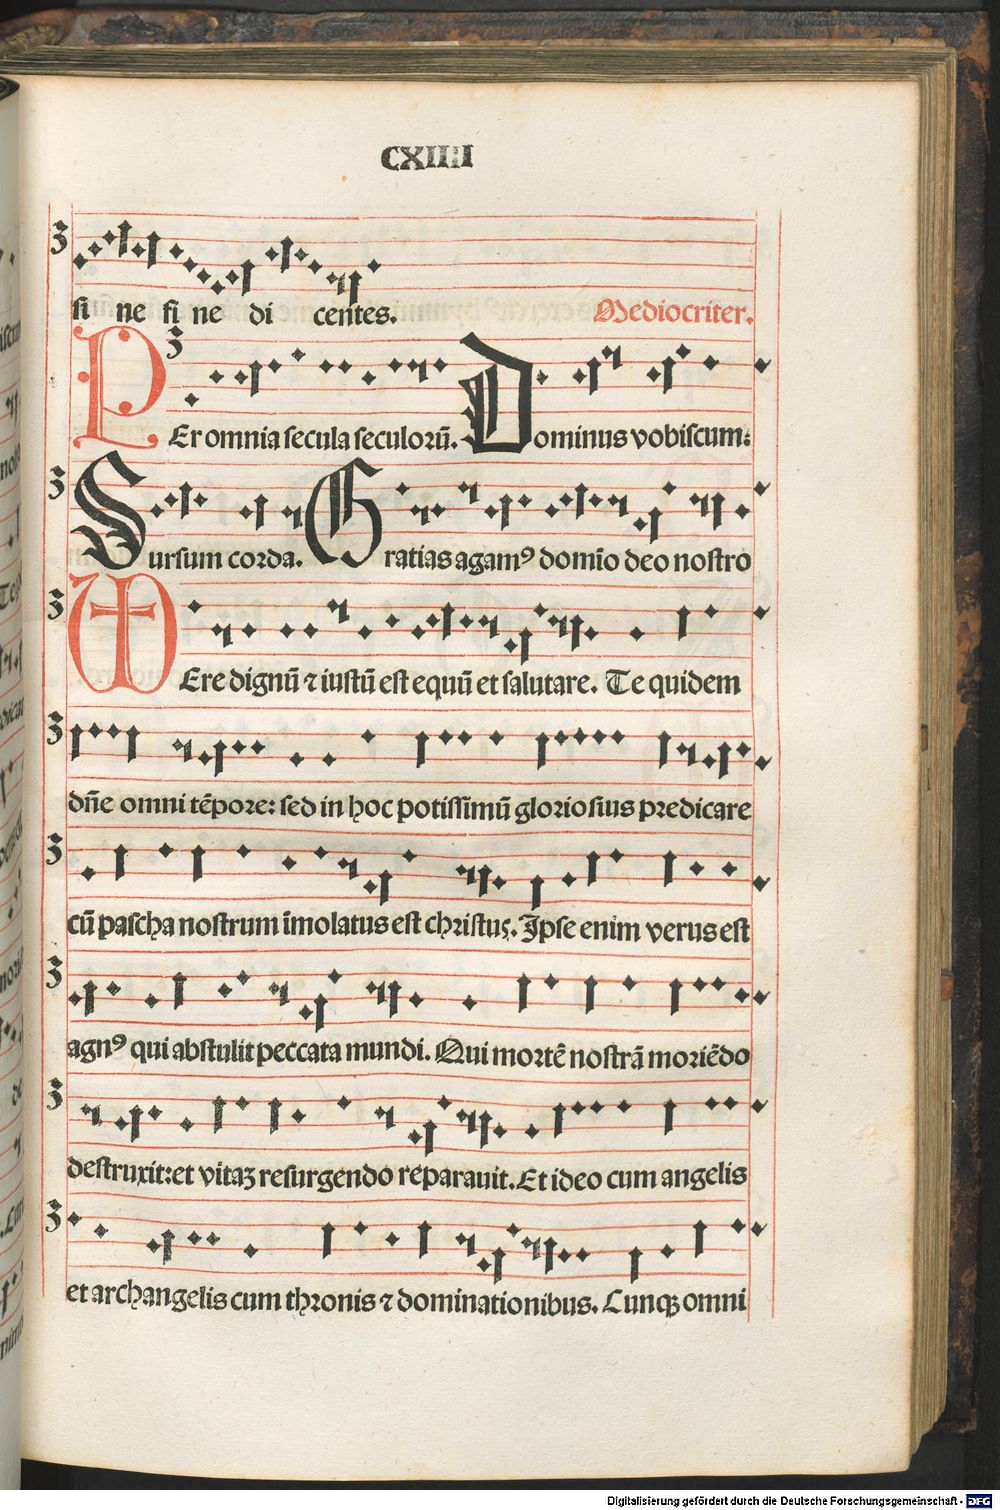 CXIIII
si ne fi ne di centes. Mediocriter.
PEr omnia secula seculorũ. Dominus vobiscum:
Sursum corda. Gratias agamꝰ domĩo deo nostro
VEre dignũ ⁊ iustũ est equũ et salutare. Te quidem
dñe omni tẽpore: sed in hoc potissimũ gloriosius predicare
cũ pascha nostrum ĩmolatus est christus. Ipse enim verus est
agnꝰ qui abstulit peccata mundi. Qui mortẽ nostrã moriẽdo
destruxit: et vitaꝫ resurgendo reparauit. Et ideo cum angelis
et archangelis cum thronis ⁊ dominationibus. Cunqꝫ omni
Digitalisierung gefördert durch die Deutsche Forschungsgemeinschaft - DFG